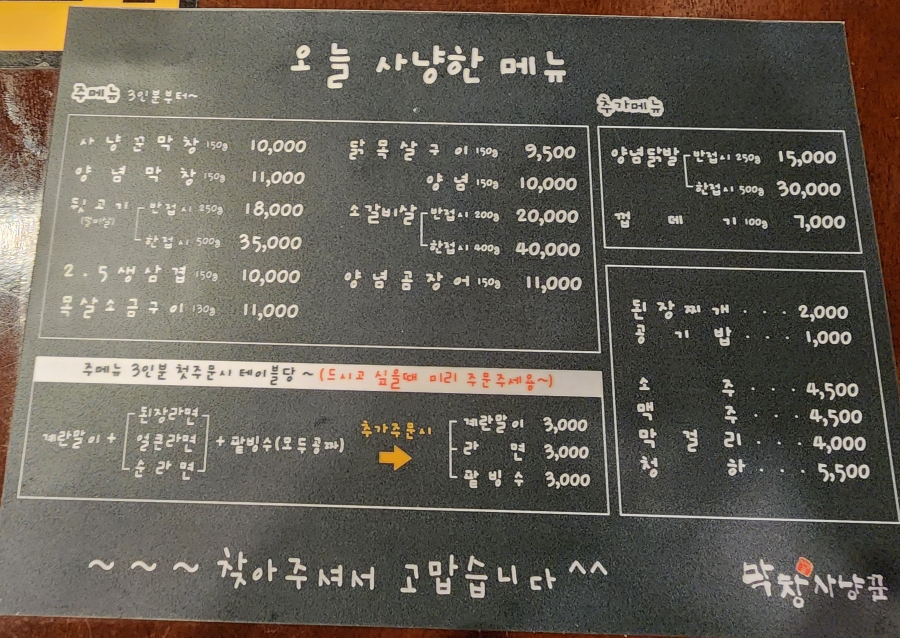 오늘 사냥한 메뉴
주메뉴 3인분부터~
사냥꾼막창 150g 10,000
양념막창 150g 11,000
뒷고기 반접시 250g 18,000
한접시 500g 35,000
2.5생삼겹 150g 10,000
목살소금구이 130g 11,000
닭목살구이 150g 9,500
양념 150g 10,000
소갈비살 반접시 200g 20,000
한접시 400g 40,000
양념곰장어 150g 11,000
추가메뉴
양념닭발 반접시 250g 15,000
한접시 500g 30,000
껍데기 100g 7,000
된장찌개 · · · 2,000
공기밥 · · · 1,000
소주 · · · 4,500
맥주 · · · 4,500
막걸리 · · · 4,000
청하 · · · 5,500
주메뉴 3인분 첫주문시 테이블당 ~ (드시고 싶을때 미리 주문주세용~)
계란말이 +
된장라면
얼큰라면
순라면
+ 팥빙수(모두공짜)
추가주문시
계란말이 3,000
라면 3,000
팥빙수 3,000
~ ~ ~ 찾아주셔서 고맙습니다 ^^
막창사냥꾼